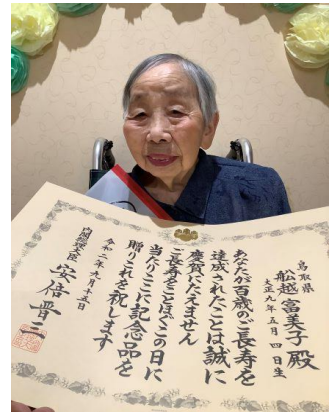 鳥取県
船越富美子殿
大正九年五月四日生
あなたが百歳のご長寿を
達成されたことは誠に
慶賀にたえません
ご長寿をことほぐこの日に
当たりここに記念品を
贈りこれを祝します
令和二年九月十五日
内閣総理大臣 安倍晋三